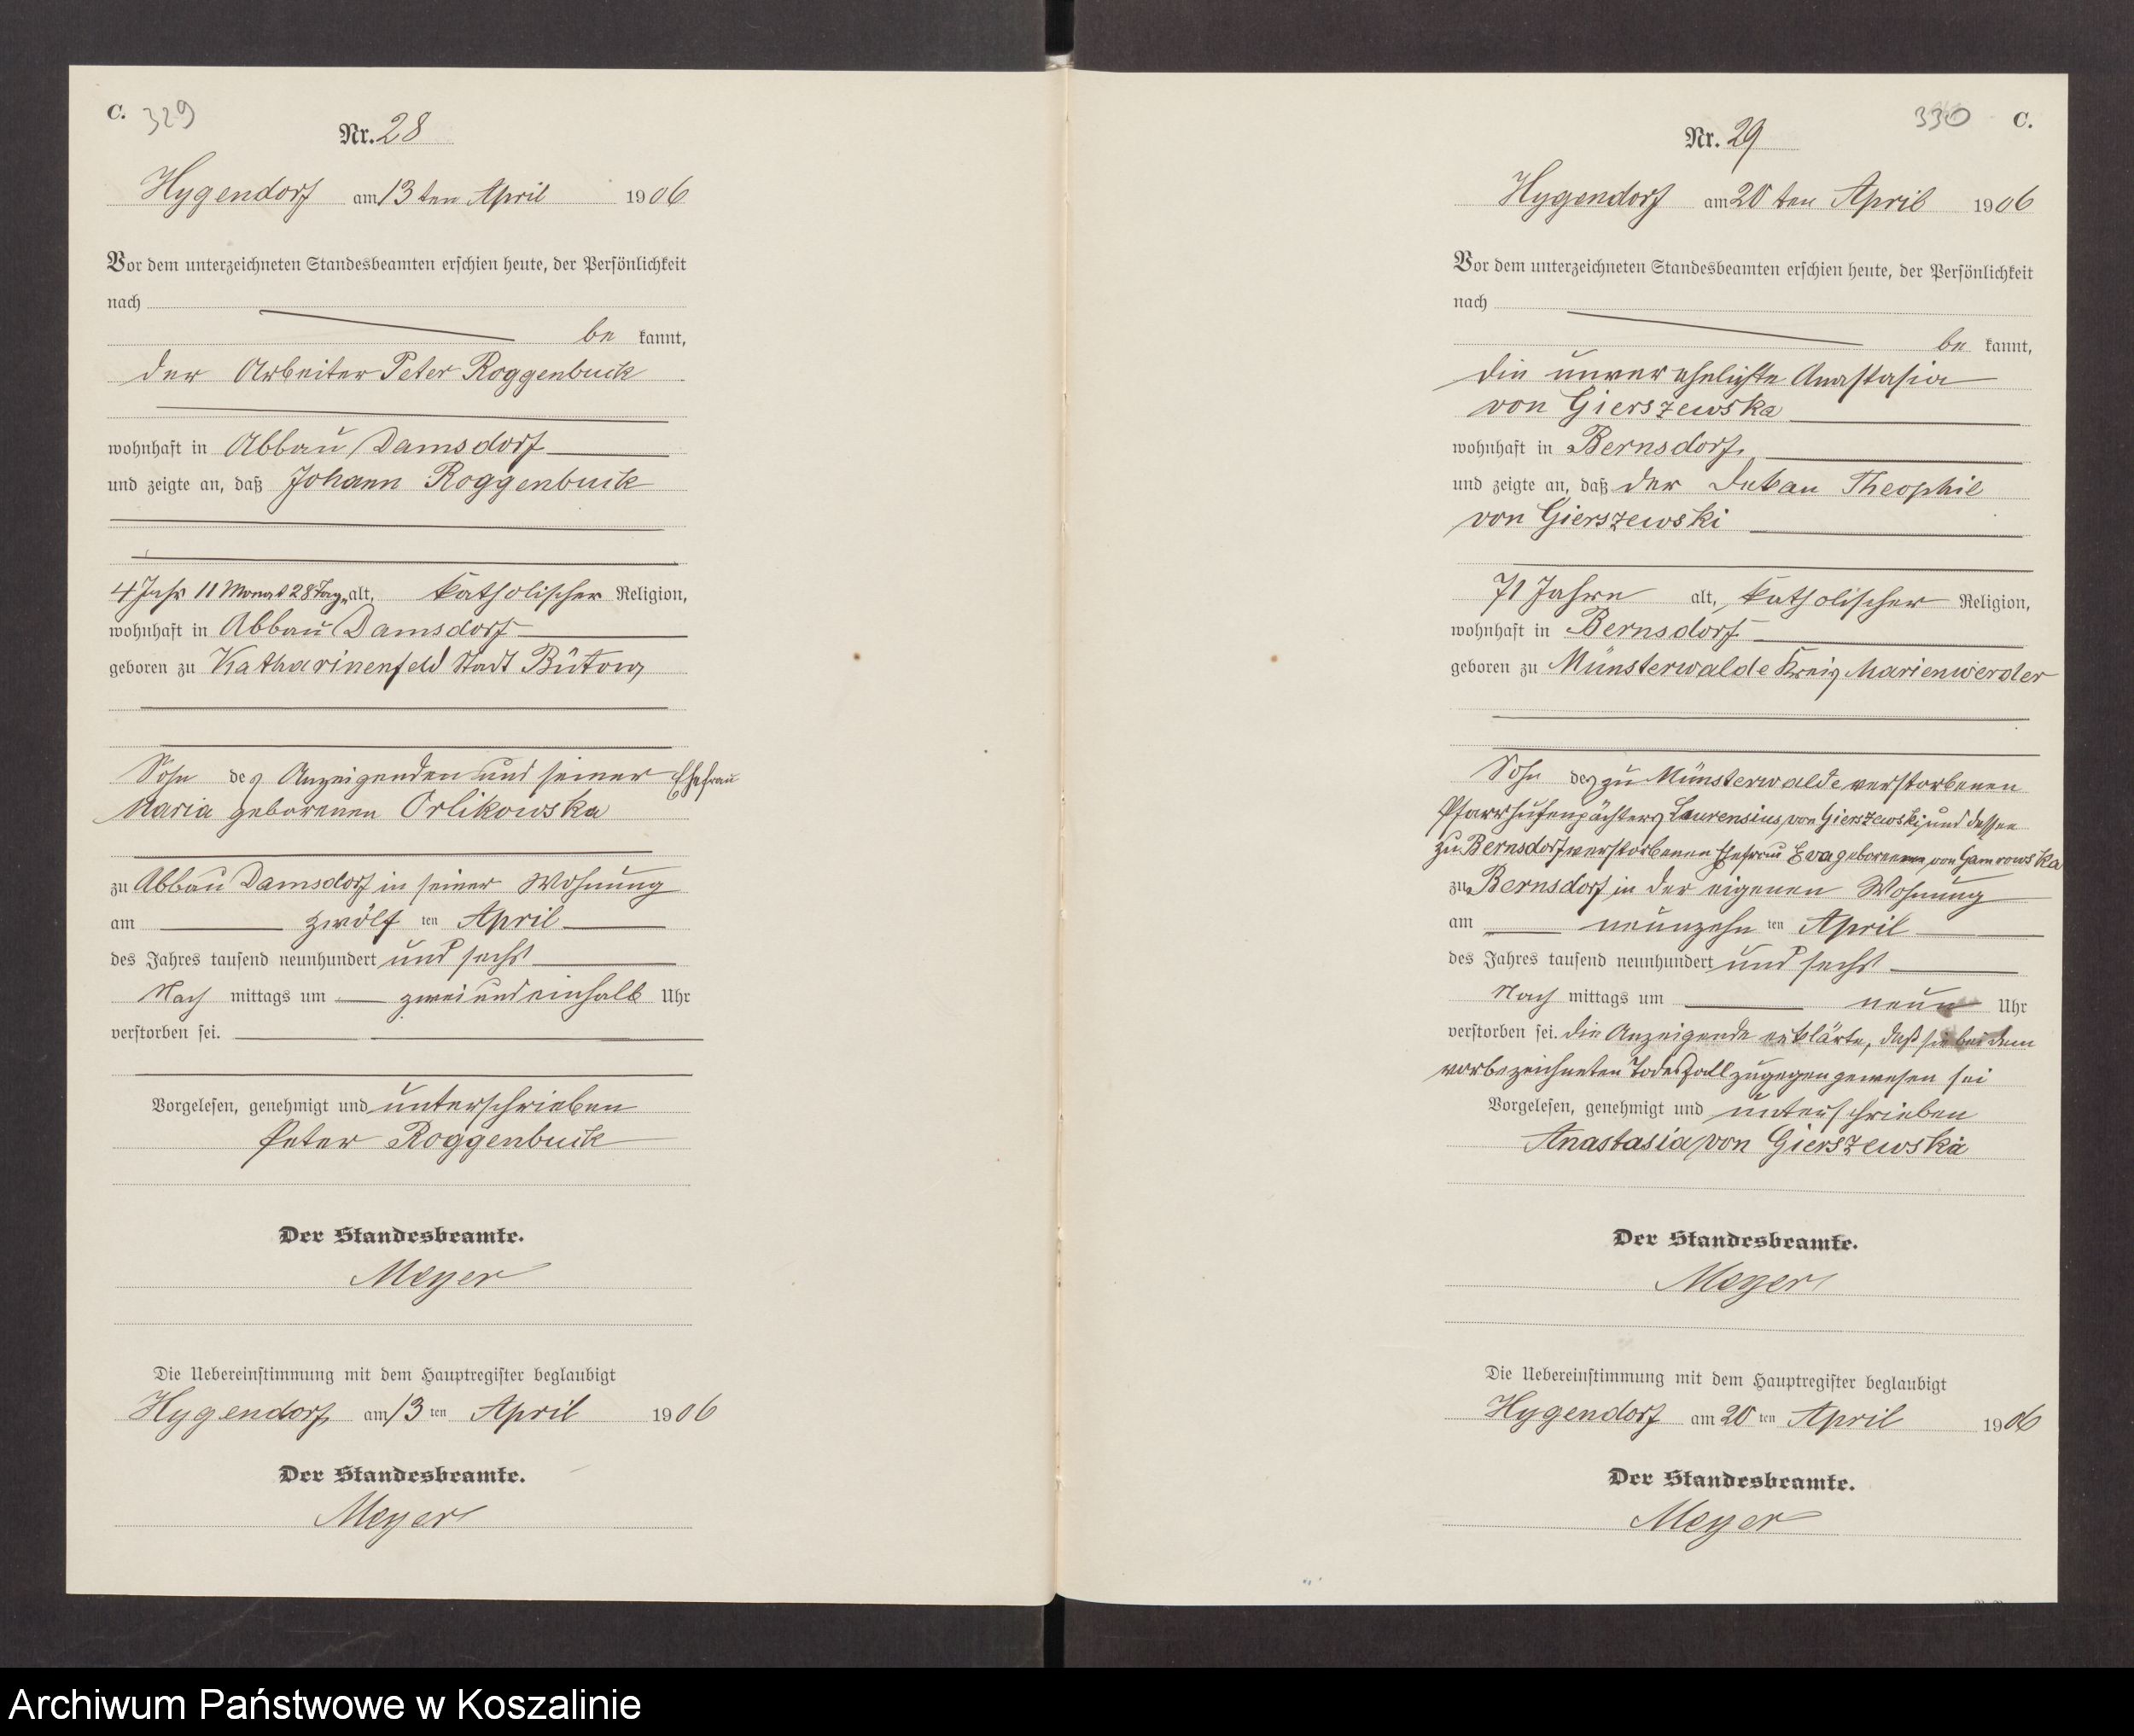 C. 329
Nr. 28
Hygendorf am 13ten April 1906
Vor dem unterzeichneten Standesbeamten erschien heute, der Persönlichkeit
nach
be kannt,
der Arbeiter Peter Roggenbuck
wohnhaft in Abbau Damsdorf
und zeigte an, daß Johann Roggenbuck
4 Jahr 11 Monat 28 Tage alt, katholischer Religion,
wohnhaft in Abbau Damsdorf
geboren zu Katharinenfeld Stadt Bütow
Sohn des Anzeigenden und seiner Ehefrau
Maria geborenen Orlikowska
zu Abbau Damsdorf in seiner Wohnung
am zwölf ten April
des Jahres tausend neunhundert und sechs
Nach mittags um zweiundeinhalb Uhr
verstorben sei.
Vorgelesen, genehmigt und unterschrieben
Peter Roggenbuck
Der Standesbeamte.
Meyer
Die Uebereinstimmung mit dem Hauptregister beglaubigt
Hygendorf am 13 ten April 1906
Der Standesbeamte.
Meyer
330 C.
Nr. 29
Hygendorf am 20 ten April 1906
Vor dem unterzeichneten Standesbeamten erschien heute, der Persönlichkeit
nach
be kannt,
die unverehelichte Anastasia
von Gierszewska
wohnhaft in Bernsdorf
und zeigte an, daß der Dekan Theophil
von Gierszewski
71 Jahre alt, katholischer Religion,
wohnhaft in Bernsdorf
geboren zu Münsterwalde Kreis Marienwerder
Sohn des zu Münsterwalde verstorbenen
Pfarrhufenpächters Laurensius von Gierszewski und dessen
zu Bernsdorf verstorbenen Ehefrau Eva geborenen von Gamrowska
zu Bernsdorf in der eigenen Wohnung
am neunzehn ten April
des Jahres tausend neunhundert und sechs
Nach mittags um neun Uhr
verstorben sei. Die Anzeigende erklärte, daß sie bei dem
vorbezeichneten Todesfall zugegen gewesen sei
Vorgelesen, genehmigt und unterschrieben
Anastasia von Gierszewska
Der Standesbeamte.
Meyer
Die Uebereinstimmung mit dem Hauptregister beglaubigt
Hygendorf am 20 ten April 1906
Der Standesbeamte.
Meyer
Archiwum Państwowe w Koszalinie